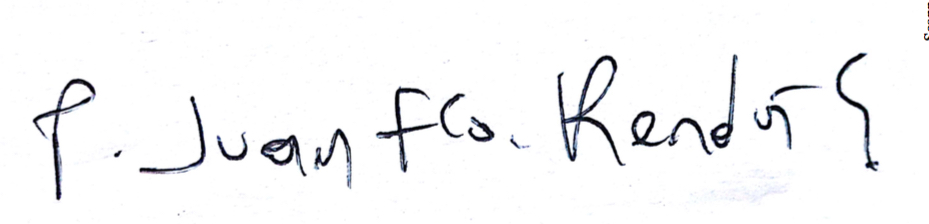 P. Juan Fco. Rendón S